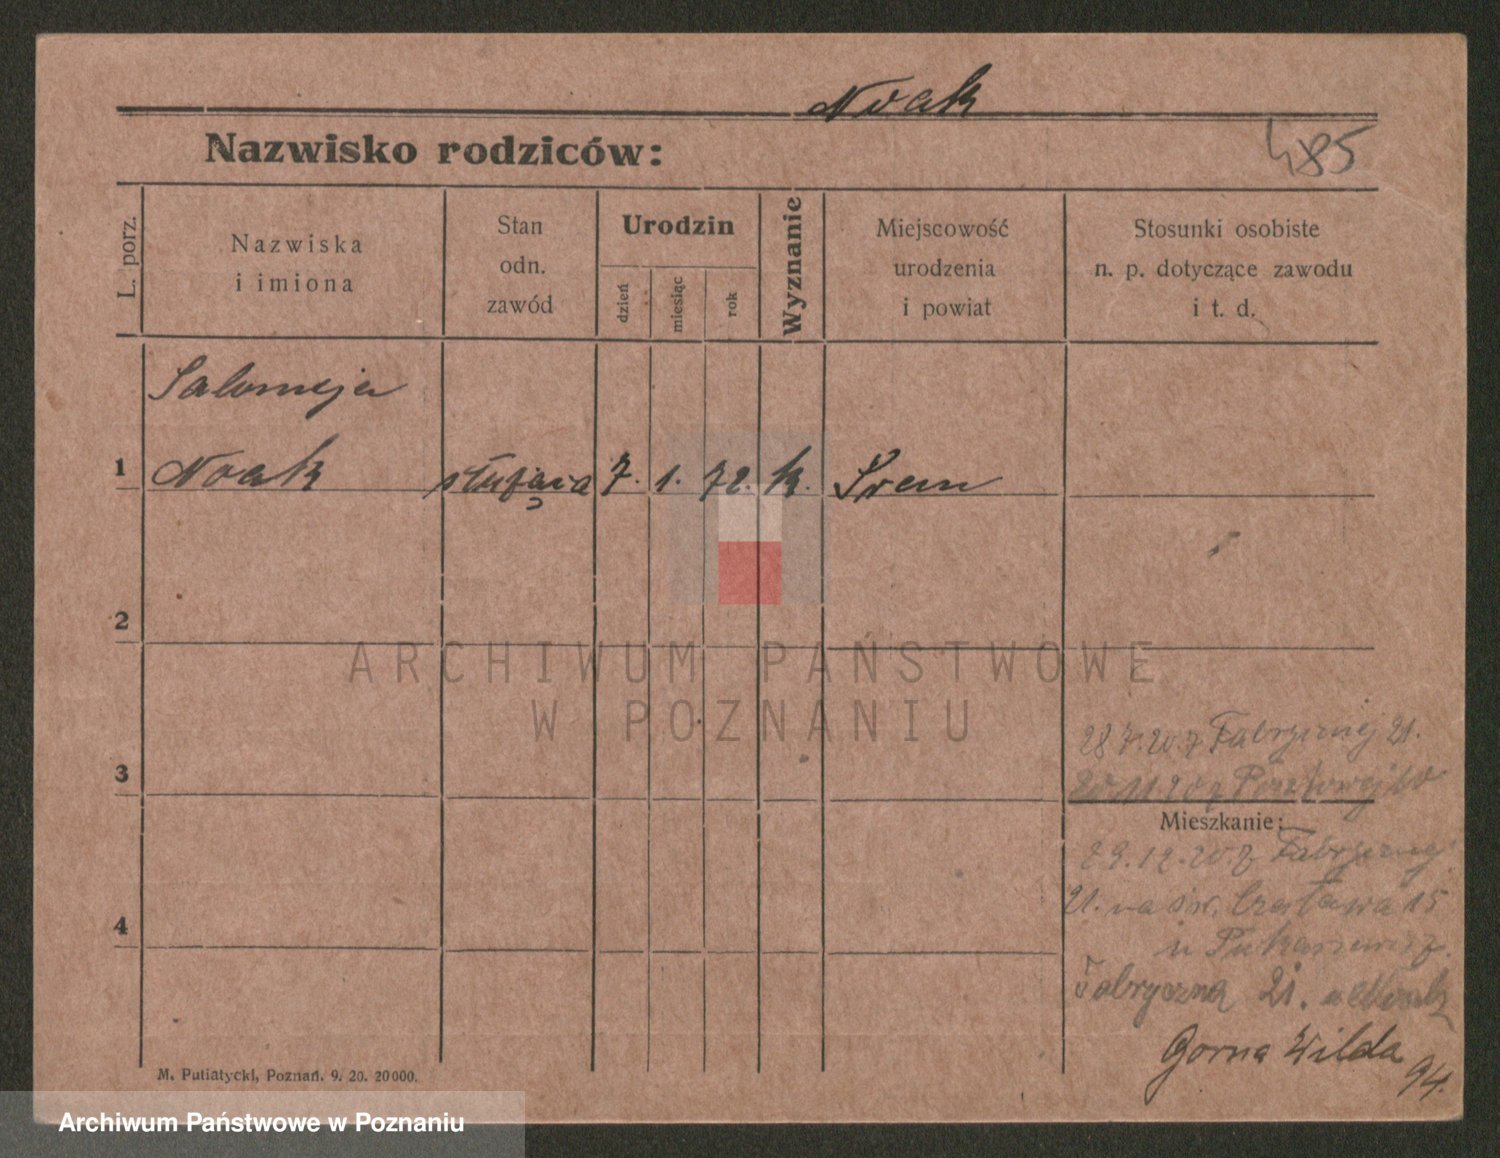 Noak
485
Nazwisko rodziców:
L. porz.
Nazwiska
i imiona
Stan
odn.
zawód
Urodzin
dzień
miesiąc
rok
Wyznanie
Miejscowość
urodzenia
i powiat
Stosunki osobiste
n. p. dotyczące zawodu
i t. d.
Salomeja
1 Noak służąca 7. 1. 72. k. Srem
2
ARCHIWUM PAŃSTWOWE
W POZNANIU
28 7. 20. z Fabrycznej 21.
3
20 11 20 z Pocztowej
Mieszkanie:
29. 12. 20. z Fabrycznej
21. na św. Czesława 15
4
u
Fabryczna 21. u Noak
Gorna Wilda
94.
M. Putiatycki, Poznań. 9. 20. 20000.
Archiwum Państwowe w Poznaniu